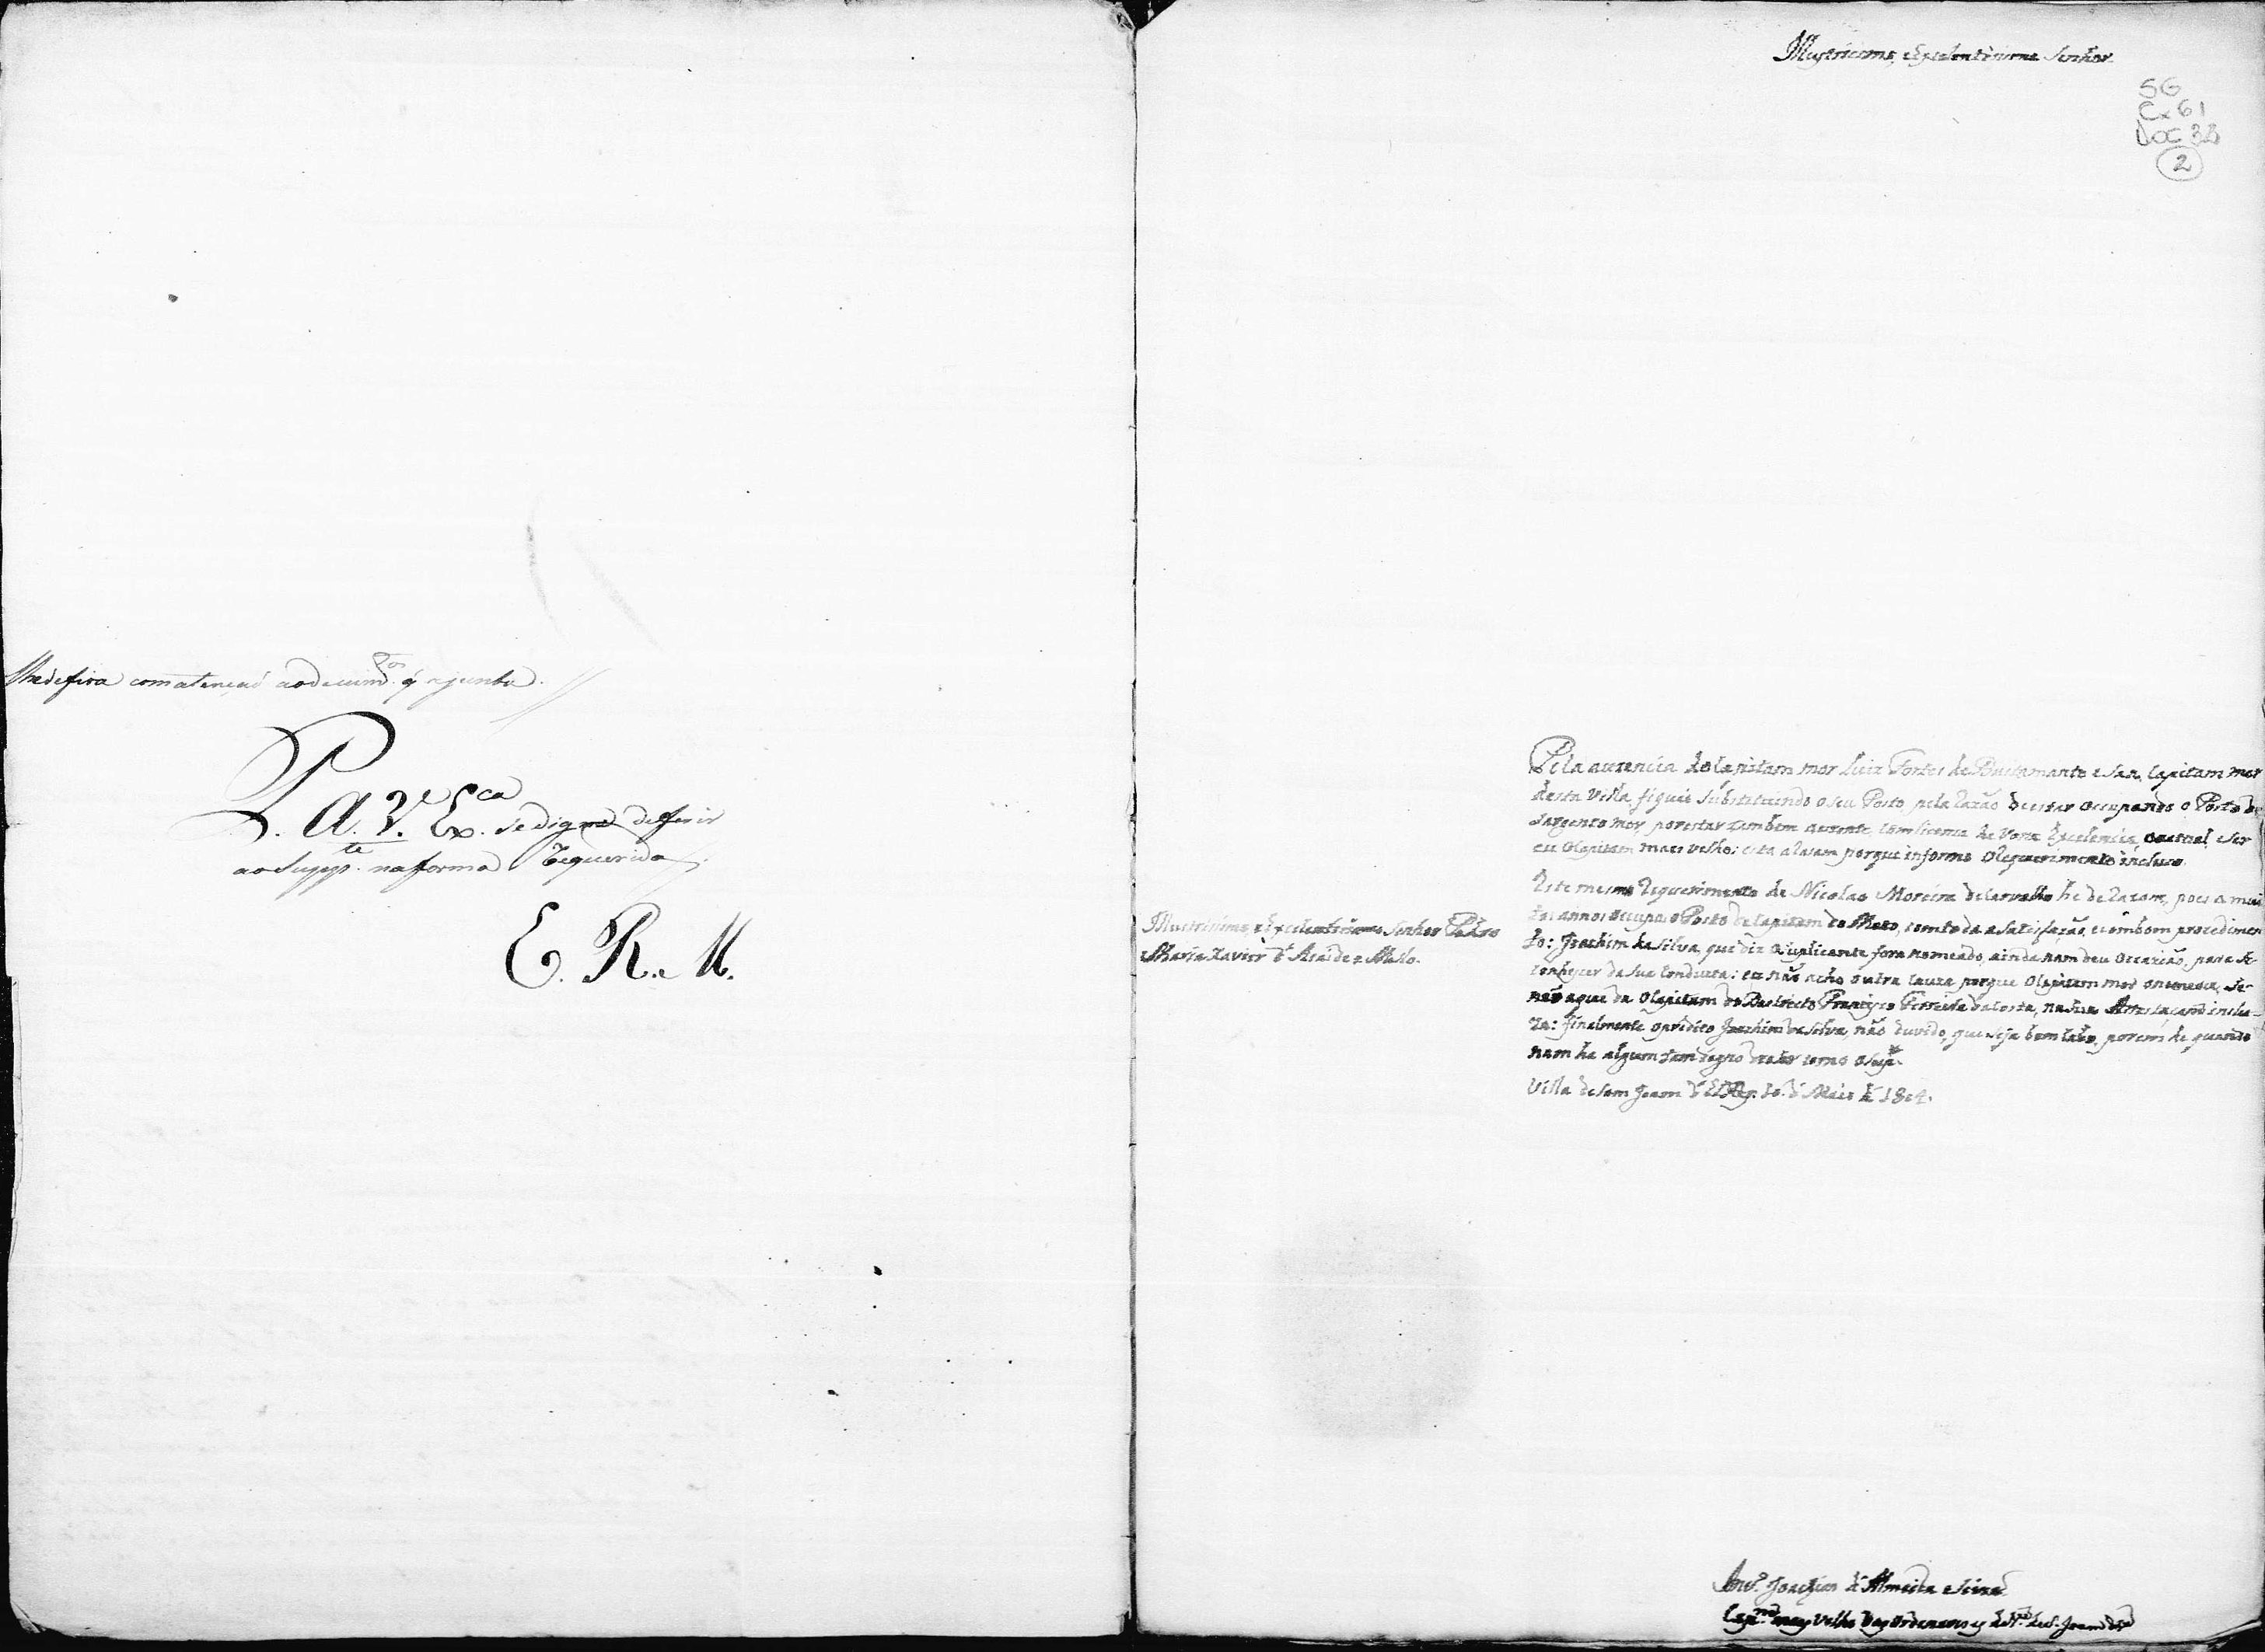 lhe defira com atençaõ ao docum.tos q̃ ajunta.
P. a V.e Ex.ca se digne defferir
ao Supp.te na forma requerida
E. R. M.
Illustrissimo, e Excelentissimo Senhor
SG
Cx 61
DOC 38
2
Pela auzencia do Capitam mor Luiz Fortes de Bustamante e Sáa, Capitam mor
desta Villa, fiquei Substituindo o seu Posto pela razaõ de estar Occupando o Posto de
Sargento mor, por estar tambem auzente, com licença de Vossa Excelencia, o actual, e ser
eu o Capitam mais velho: esta a razam porque informo o Requerimento incluzo.
Este mesmo Requerimento de Nicolao Moreira de Carvalho he de razam, pois a mui
tos annos occupa o Posto de Capitam do Mato, com toda a satisfaçaõ, e com bom procedimen
to: Joachim da Silva, que diz o Suplicante fora nomeado, ainda nam deu occaziaõ, para se
conheçer da sua Conducta: eu naõ acho outra cauza porque o Capitam mor o nomeou, se-
naõ a que da o Capitam do Destricto Françisco Ferreira da Costa, na sua Attestaçam inclu-
za: finalmente o predito Joachim da Silva, naõ duvido, que seja bom Cabo, porem he quando
nam ha algum tam digno e como o Sup.te
Villa de Sam Joam d' El Rey 10 d' Maio de 1804.
Illustrissimo, e Excelentissimo Senhor Pedro
Maria Xavier d' Ataide e Mello.
Joachim de Almeida e
Cap.m mais Velho das Ordenanças da V.a de S. Joam